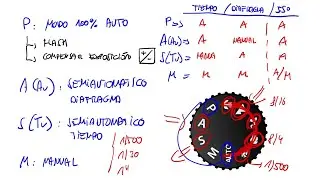 P: MODO 100% AUTO
FLASH
COMPENSAR EXPOSICIÓN +/-
A (AV) SEMIAUTOMATICO
DIAFRAGMA
S (TV): SEMIAUTOMATICO
TIEMPO
1/500
1/20
1"
M: MANUAL
TIEMPO / DIAFRAGMA / ISO
P => A A A
A (AV) => A MANUAL A
S (TV) => MANUAL A A
M => M M A/M
P
A
S
M
AUTO
1/500